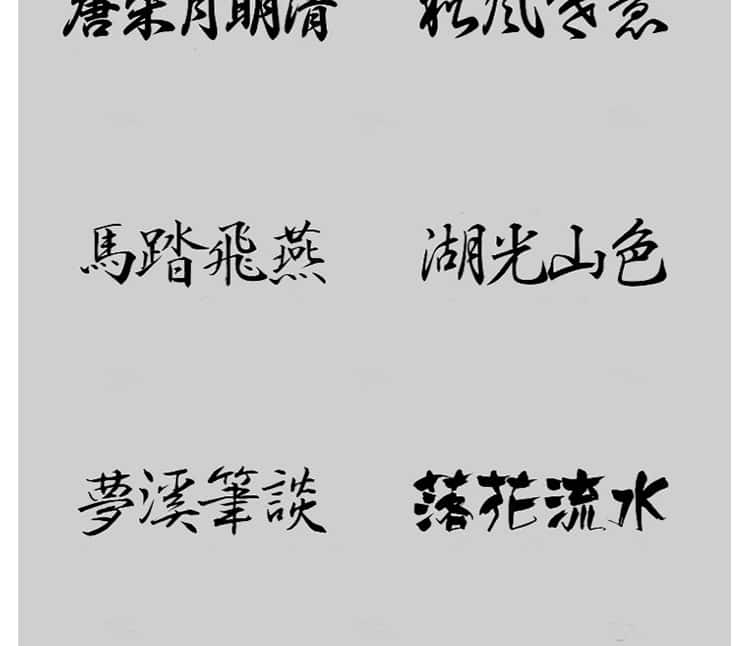 唐宋 明清
馬踏飛燕
湖光山色
夢溪筆談
落花流水